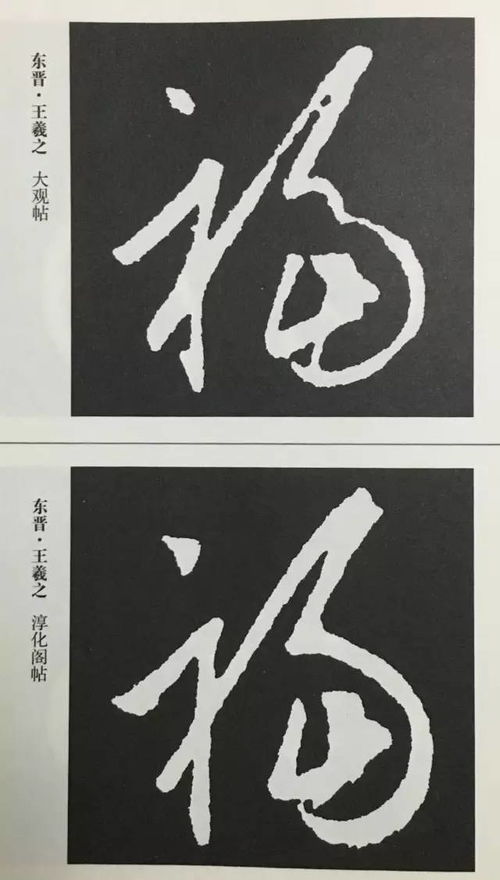 东晋·王羲之 大观帖
福
东晋·王羲之 淳化阁帖
福